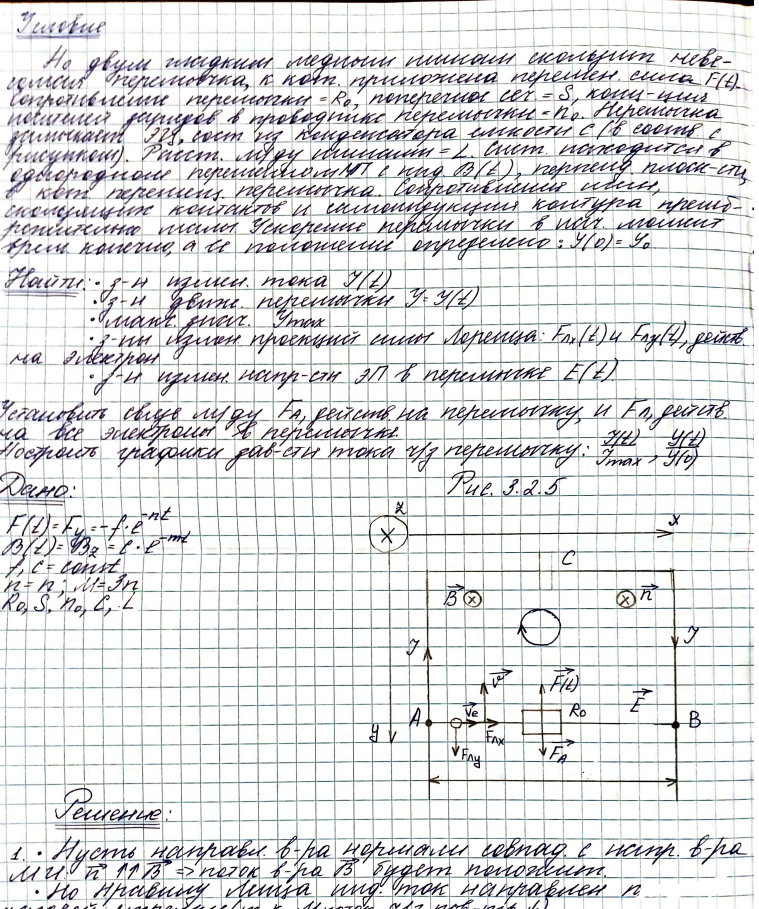 Условие
По двум гладким медным шинам скользит неве-
сомая перемычка, к кот. приложена перемен. сила F(t).
Сопротивление перемычки = R₀, поперечное сеч = S, конц-ция
носителей зарядов в проводнике перемычки = n₀. Перемычка
замыкает ЭЦ, сост из конденсатора емкости C (в соотв с
рисунком). Расст. м/ду шинами = L. Сист. находится в
однородном переменном МП с инд B(t), перпенд плоск-сти,
в кот перемещ перемычка. Сопротивления шин,
скользящих контактов и самоиндукция контура пренеб-
режительно малы. Ускорение перемычки в нач. момент
врем конечно, а ее положение определено: y(0) = y₀
Найти: • з-н измен. тока J(t)
• з-н движ. перемычки y = y(t)
• макс. знач. Jmax
• з-ны измен проекций силы Лоренца: Fлx(t) и Fлy(t), действ
на электрон
• з-н измен. напр-сти ЭП в перемычке E(t)
Установить связь м/ду FA, действ на перемычку, и Fл, действ
на все электроны в перемычке
Построить графики зав-сти тока ч/з перемычку: J(t)/Jmax, y(t)/y(0)
Дано:
Рис. 3.2.5
F(t) = Fy = -f·e^-nt
B(t) = Bz = c·e^-mt
f, c = const
n = n; m = 3n
R₀, S, n₀, C, L
z
x
C
B
n
J
J
v
F(t)
A
ve
R₀
E
B
y
Fлx
Fлy
FA
Решение:
1. • Пусть направл. в-ра нормали совпад. с напр. в-ра
МИ. n ↑↑ B => поток в-ра B будет положит.
• По правилу Ленца инд. ток направлен п